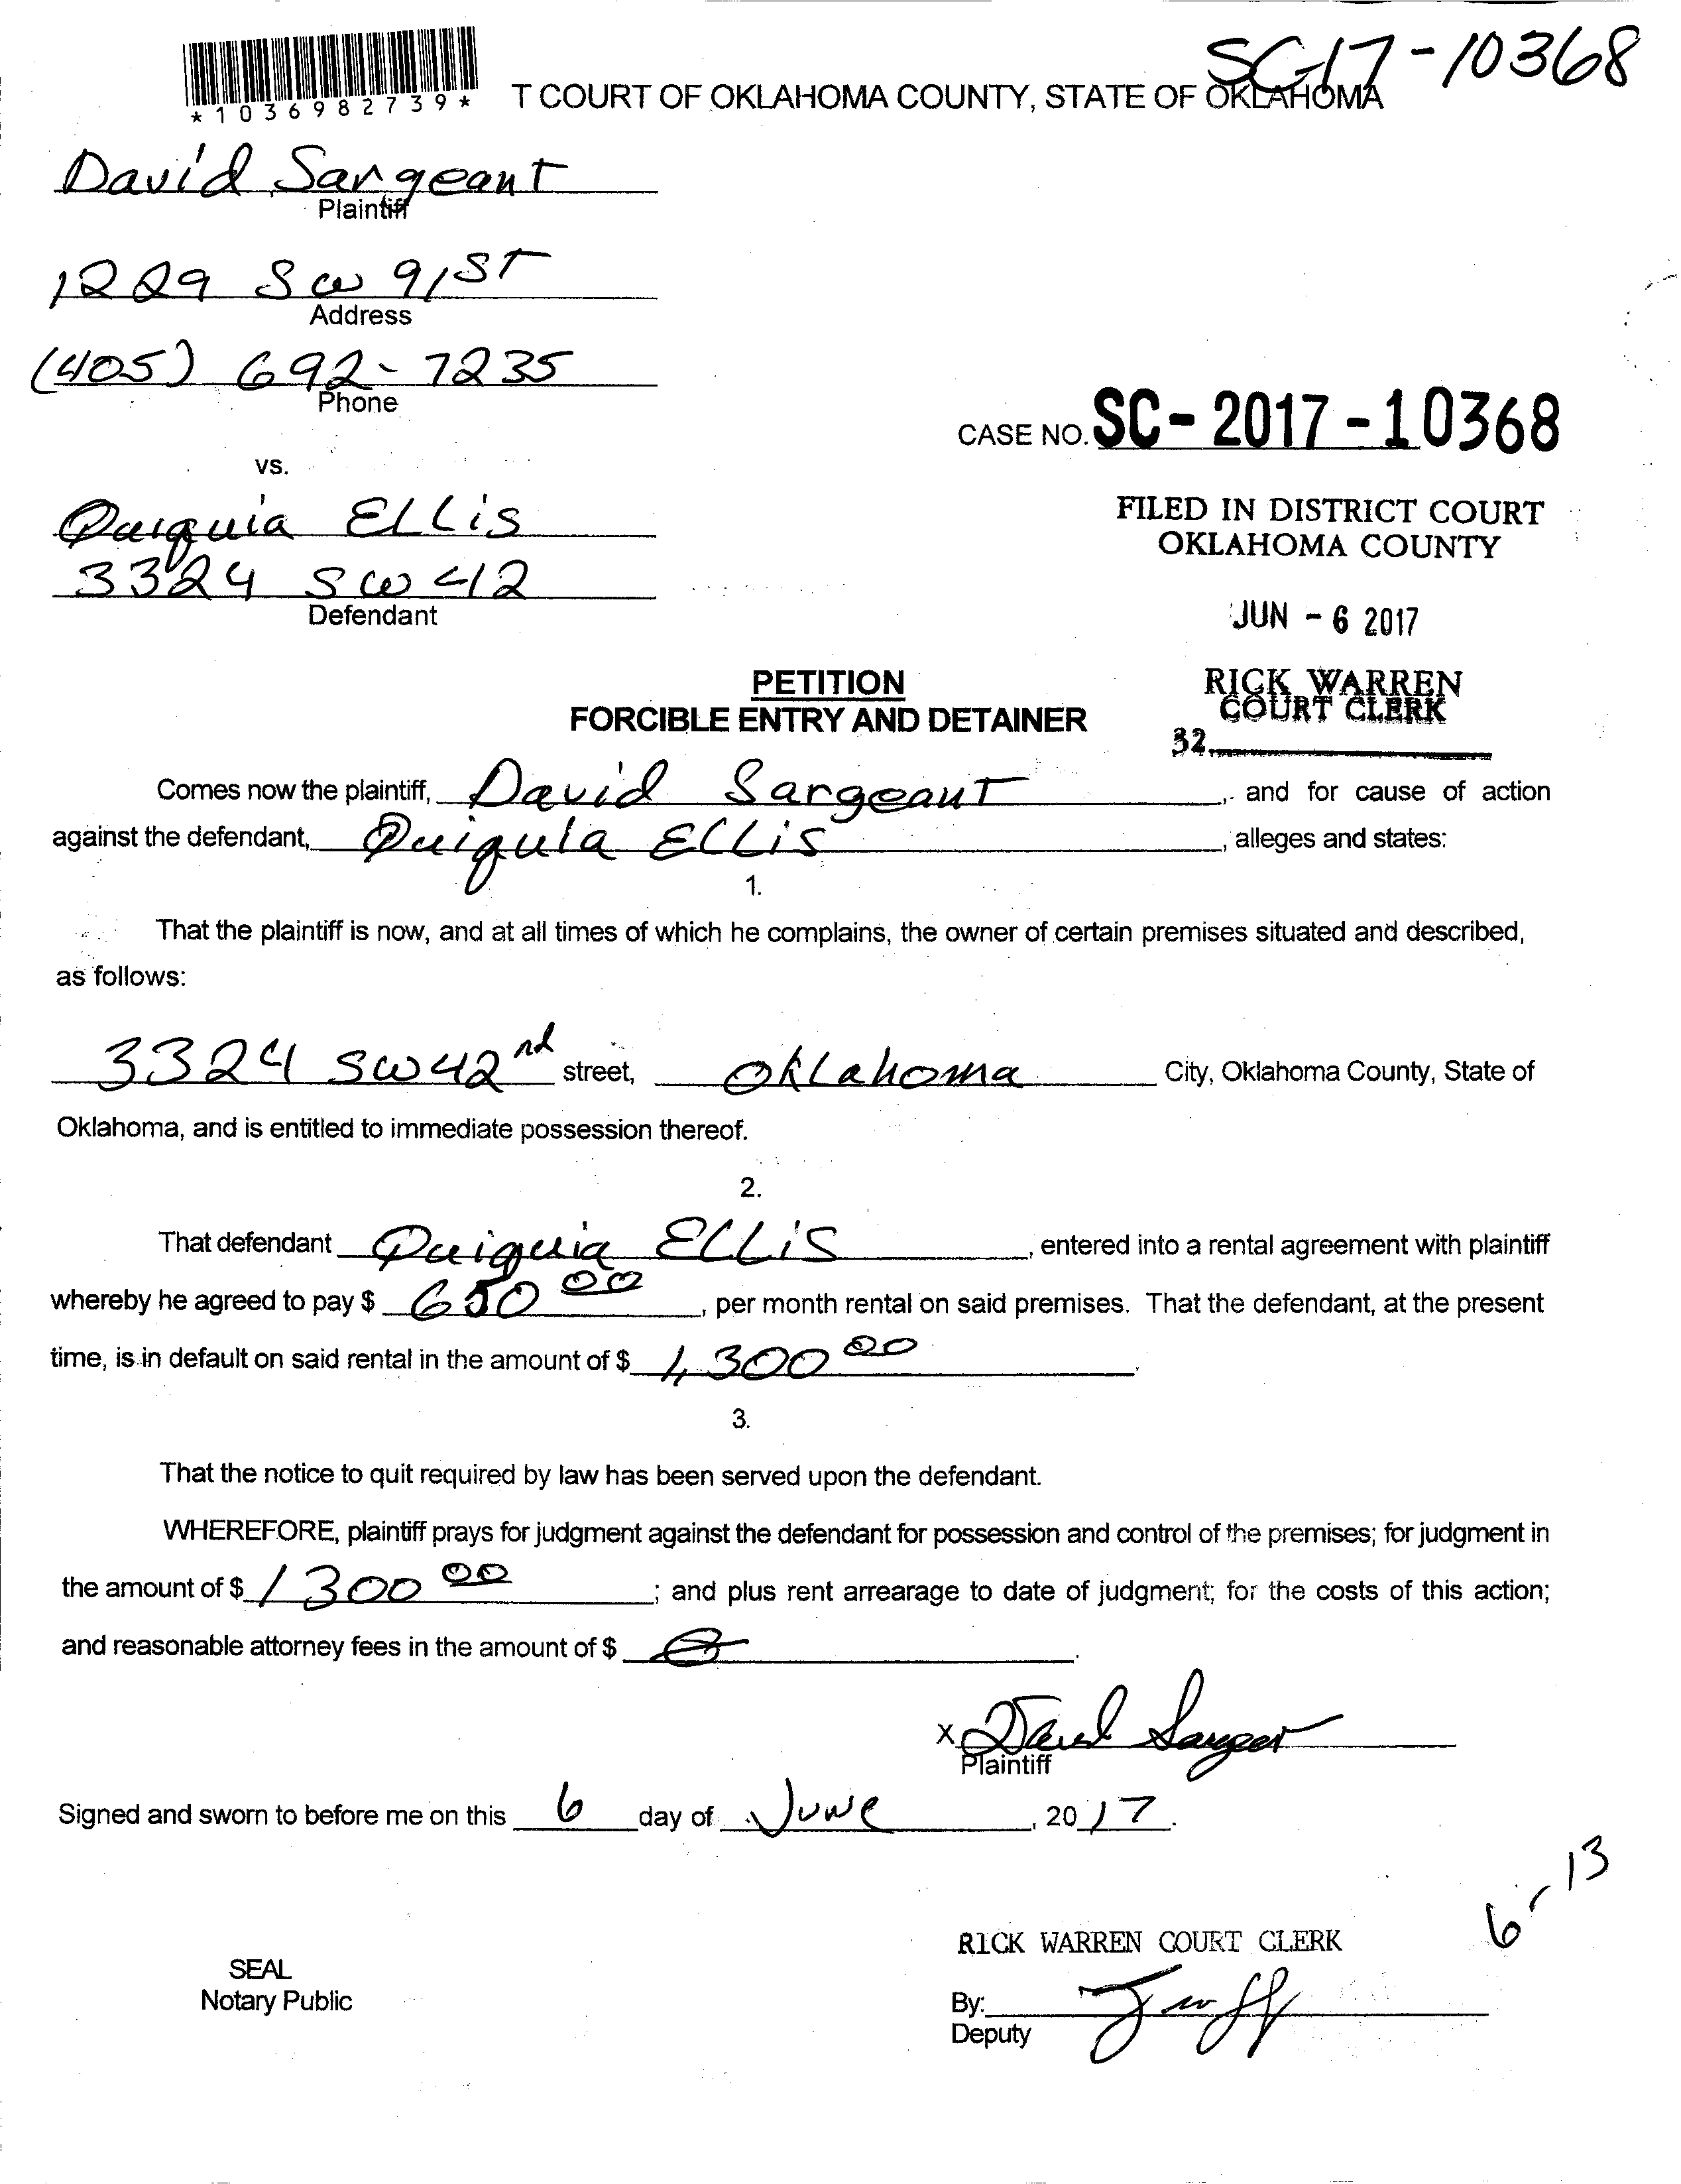 SC-17-10368
*1036982739*
T COURT OF OKLAHOMA COUNTY, STATE OF OKLAHOMA
David Sargeant
Plaintiff
1229 SW 91ST
Address
(405) 692-7235
Phone
CASE NO. SC-2017-10368
vs.
Quiquia ELLis
FILED IN DISTRICT COURT
OKLAHOMA COUNTY
3324 SW 42
Defendant
JUN - 6 2017
PETITION
RICK WARREN
COURT CLERK
FORCIBLE ENTRY AND DETAINER
32
Comes now the plaintiff, David Sargeant, and for cause of action
against the defendant, Quiquia ELLis, alleges and states:
1.
That the plaintiff is now, and at all times of which he complains, the owner of certain premises situated and described,
as follows:
3324 SW 42nd street, Oklahoma City, Oklahoma County, State of
Oklahoma, and is entitled to immediate possession thereof.
2.
That defendant Quiquia ELLis, entered into a rental agreement with plaintiff
whereby he agreed to pay $ 650 00, per month rental on said premises. That the defendant, at the present
time, is in default on said rental in the amount of $ 1,300 00.
3.
That the notice to quit required by law has been served upon the defendant.
WHEREFORE, plaintiff prays for judgment against the defendant for possession and control of the premises; for judgment in
the amount of $ 1300 00; and plus rent arrearage to date of judgment; for the costs of this action;
and reasonable attorney fees in the amount of $
X David Sargeant
Plaintiff
Signed and sworn to before me on this 6 day of June, 2017.
6-13
RICK WARREN COURT CLERK
SEAL
Notary Public
By:
Deputy